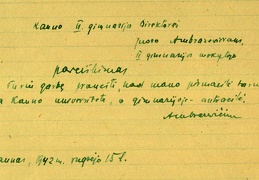 Kauno II gimnazijos Direktoriui
Juozo Ambrazevičiaus,
II gimnazijos mokytojo
pareiškimas
Turiu garbę pranešti, kad mano pirmaeilė tarnyba
Kauno universitete, o gimnazijoje - antraeilė.
Ambrazevičius
Kaunas, 1942 m. rugsėjo 15 d.